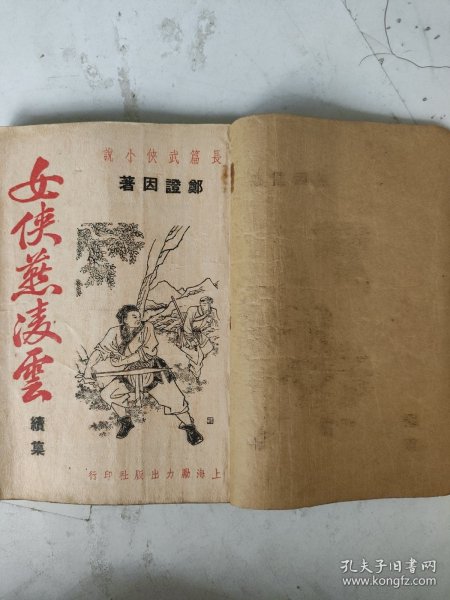 長篇武俠小說
鄭證因著
女俠燕凌雲
續集
上海勵力出版社印行
孔夫子旧书网
www.kongfz.com